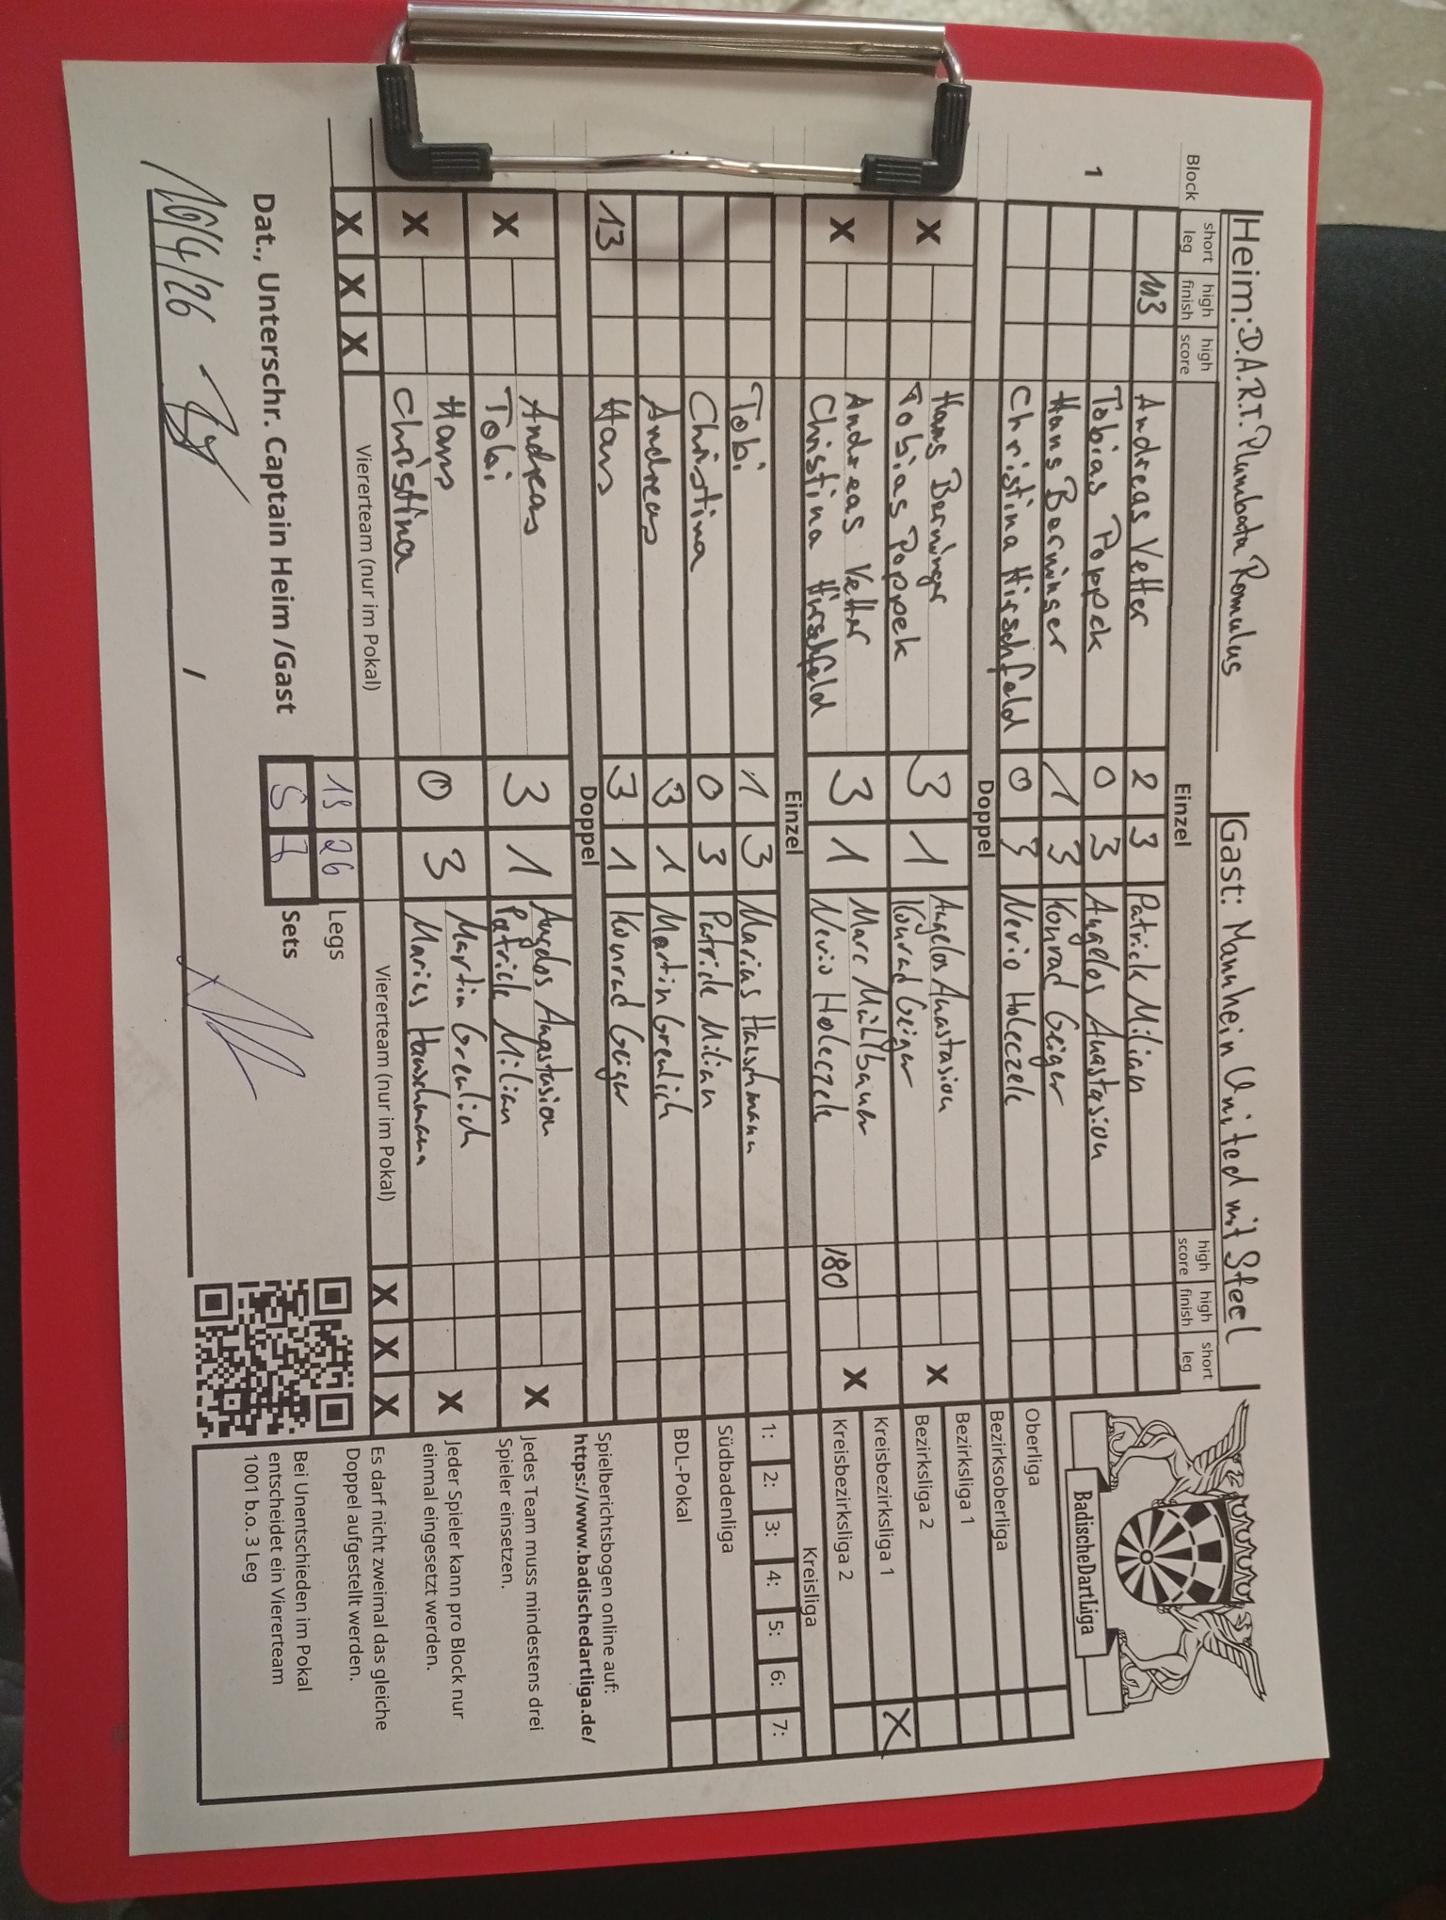 Heim: D.A.R.T. Plumbata Romulus Gast: Mannheim United mit Steel
Block short leg high finish high score Einzel high score high finish short leg
1
113 Andreas Vetter 2 3 Patrick Milian
Tobias Poppek 0 3 Angelos Anastasiou
Hans Berminger 1 3 Konrad Geiger
Christina Hirschfeld 0 3 Nerio Holeczek
Doppel
X Hans Berminger 3 1 Angelos Anastasiou X
Tobias Poppek Konrad Geiger
X Andreas Vetter 3 1 Marc Mühlbauer X
Christina Hirschfeld Nerio Holeczek 180
Einzel
Tobi 1 3 Marius Hauschmann
Christina 0 3 Patrick Milian
Andreas 3 1 Martin Greulich
13 Hans 3 1 Konrad Geiger
Doppel
X Andreas 3 1 Angelos Anastasiou X
Tobi Patrick Milian
X Hans 0 3 Martin Greulich X
Christina Marius Hauschmann
X X X Viererteam (nur im Pokal) Viererteam (nur im Pokal) X X X
19 26 Legs
Dat., Unterschr. Captain Heim /Gast 5 7 Sets
16/4/26 /
BadischeDartLiga
Oberliga
Bezirksoberliga
Bezirksliga 1
Bezirksliga 2
Kreisbezirksliga 1 X
Kreisbezirksliga 2
Kreisliga
1: 2: 3: 4: 5: 6: 7:
Südbadenliga
BDL-Pokal
Spielberichtsbogen online auf:
https://www.badischedartliga.de/
Jedes Team muss mindestens drei
Spieler einsetzen.
Jeder Spieler kann pro Block nur
einmal eingesetzt werden.
Es darf nicht zweimal das gleiche
Doppel aufgestellt werden.
Bei Unentschieden im Pokal
entscheidet ein Viererteam
1001 b.o. 3 Leg